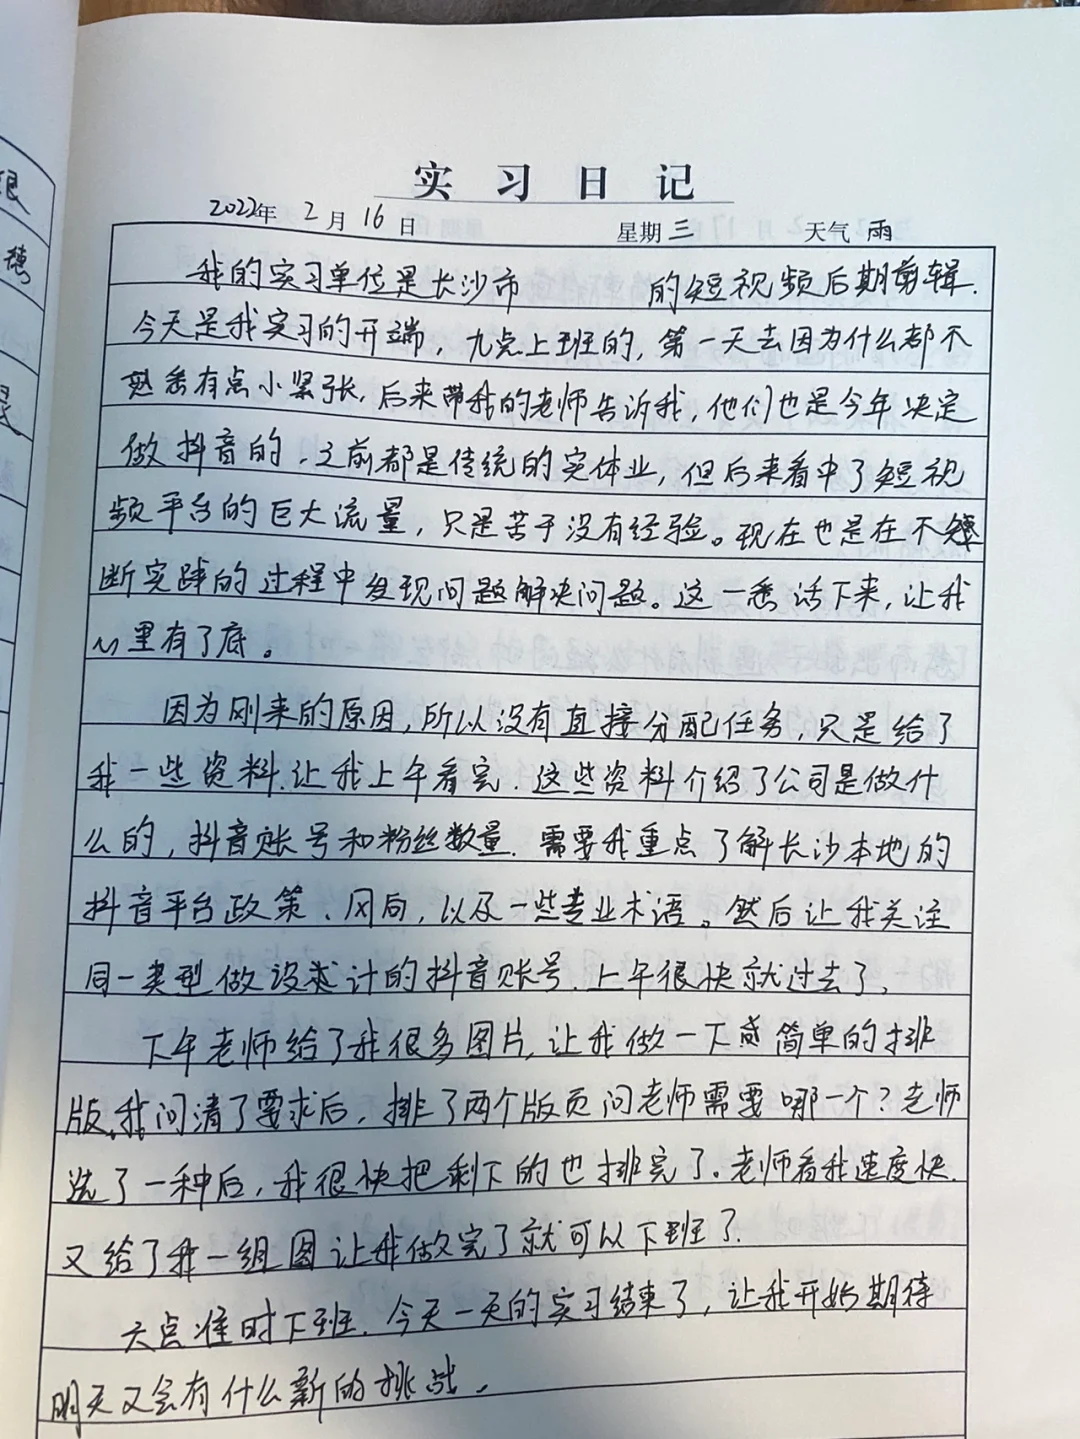 实习日记
2022年2月16日 星期三 天气雨
我的实习单位是长沙市 的短视频后期剪辑.
今天是我实习的开端，九点上班的，第一天去因为什么都不
熟悉有点小紧张，后来带我的老师告诉我，他们也是今年决定
做抖音的，之前都是传统的实体业，但后来看中了短视
频平台的巨大流量，只是苦于没有经验。现在也是在不
断实践的过程中发现问题解决问题。这一悉话下来，让我
心里有了底。
因为刚来的原因，所以没有直接分配任务，只是给了
我一些资料.让我上午看完.这些资料介绍了公司是做什
么的，抖音账号和粉丝数量.需要我重点了解长沙本地的
抖音平台政策、风向，以及一些专业术语。然后让我关注
同一类型做设计的抖音账号.上午很快就过去了、
下午老师给了我很多图片，让我做一下简单的排
版.我问清了要求后，排了两个版页问老师需要哪一个？老师
选了一种后，我很快把剩下的也排完了.老师看我速度快.
又给了我一组图让我做完了就可以下班了.
六点准时下班.今天一天的实习结束了，让我开始期待
明天又会有什么新的挑战。
浪
穗